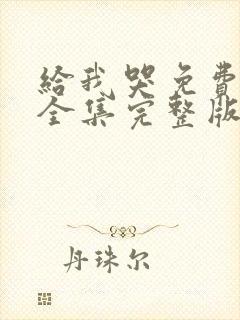 给我哭免费
全集完整版
丹珠尔